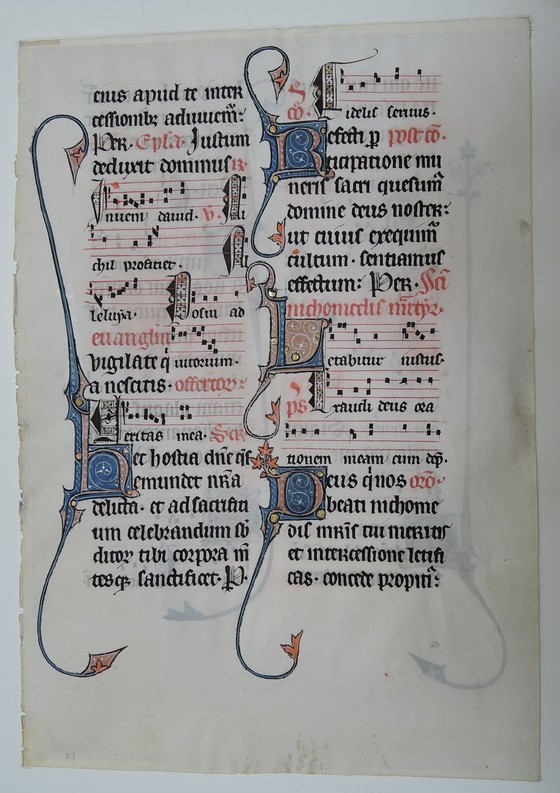 eius apud te inter
cessionib; adiuuem̃:
Per. Ep̃la. Justum
deduxit dominus R.
Inueni dauid. V. Ni
chil proficiet.
Alleluya. Posui ad
euanglm̃
vigilate q̃ iutorium.
a nescitis. offertor̃:
Ueritas mea. Scr̃
Hec hostia dñe q̃s
emundet nr̃a
delicta. et ad sacrifici
um celebrandum sb̃
ditor̃ tibi corpora m̃
tesq; sanctificet. P.
S
cõ. Fidelis seruus.
Refecti p̱ post cõ.
ticipatione mu
neris sacri quesum̃
domine deus noster:
ut cuius exequim̃
cultum. sentiamus
effectum: Per. Sci
nichomedis mr̃tyr̃.
Letabitur iustus.
ps Exaudi deus ora
tionem meam cum dep̃.
Deus q̃ nos orõ.
beati nichome
dis mr̃is tui meritis
et intercessione letifi
cas. concede propiti̾: